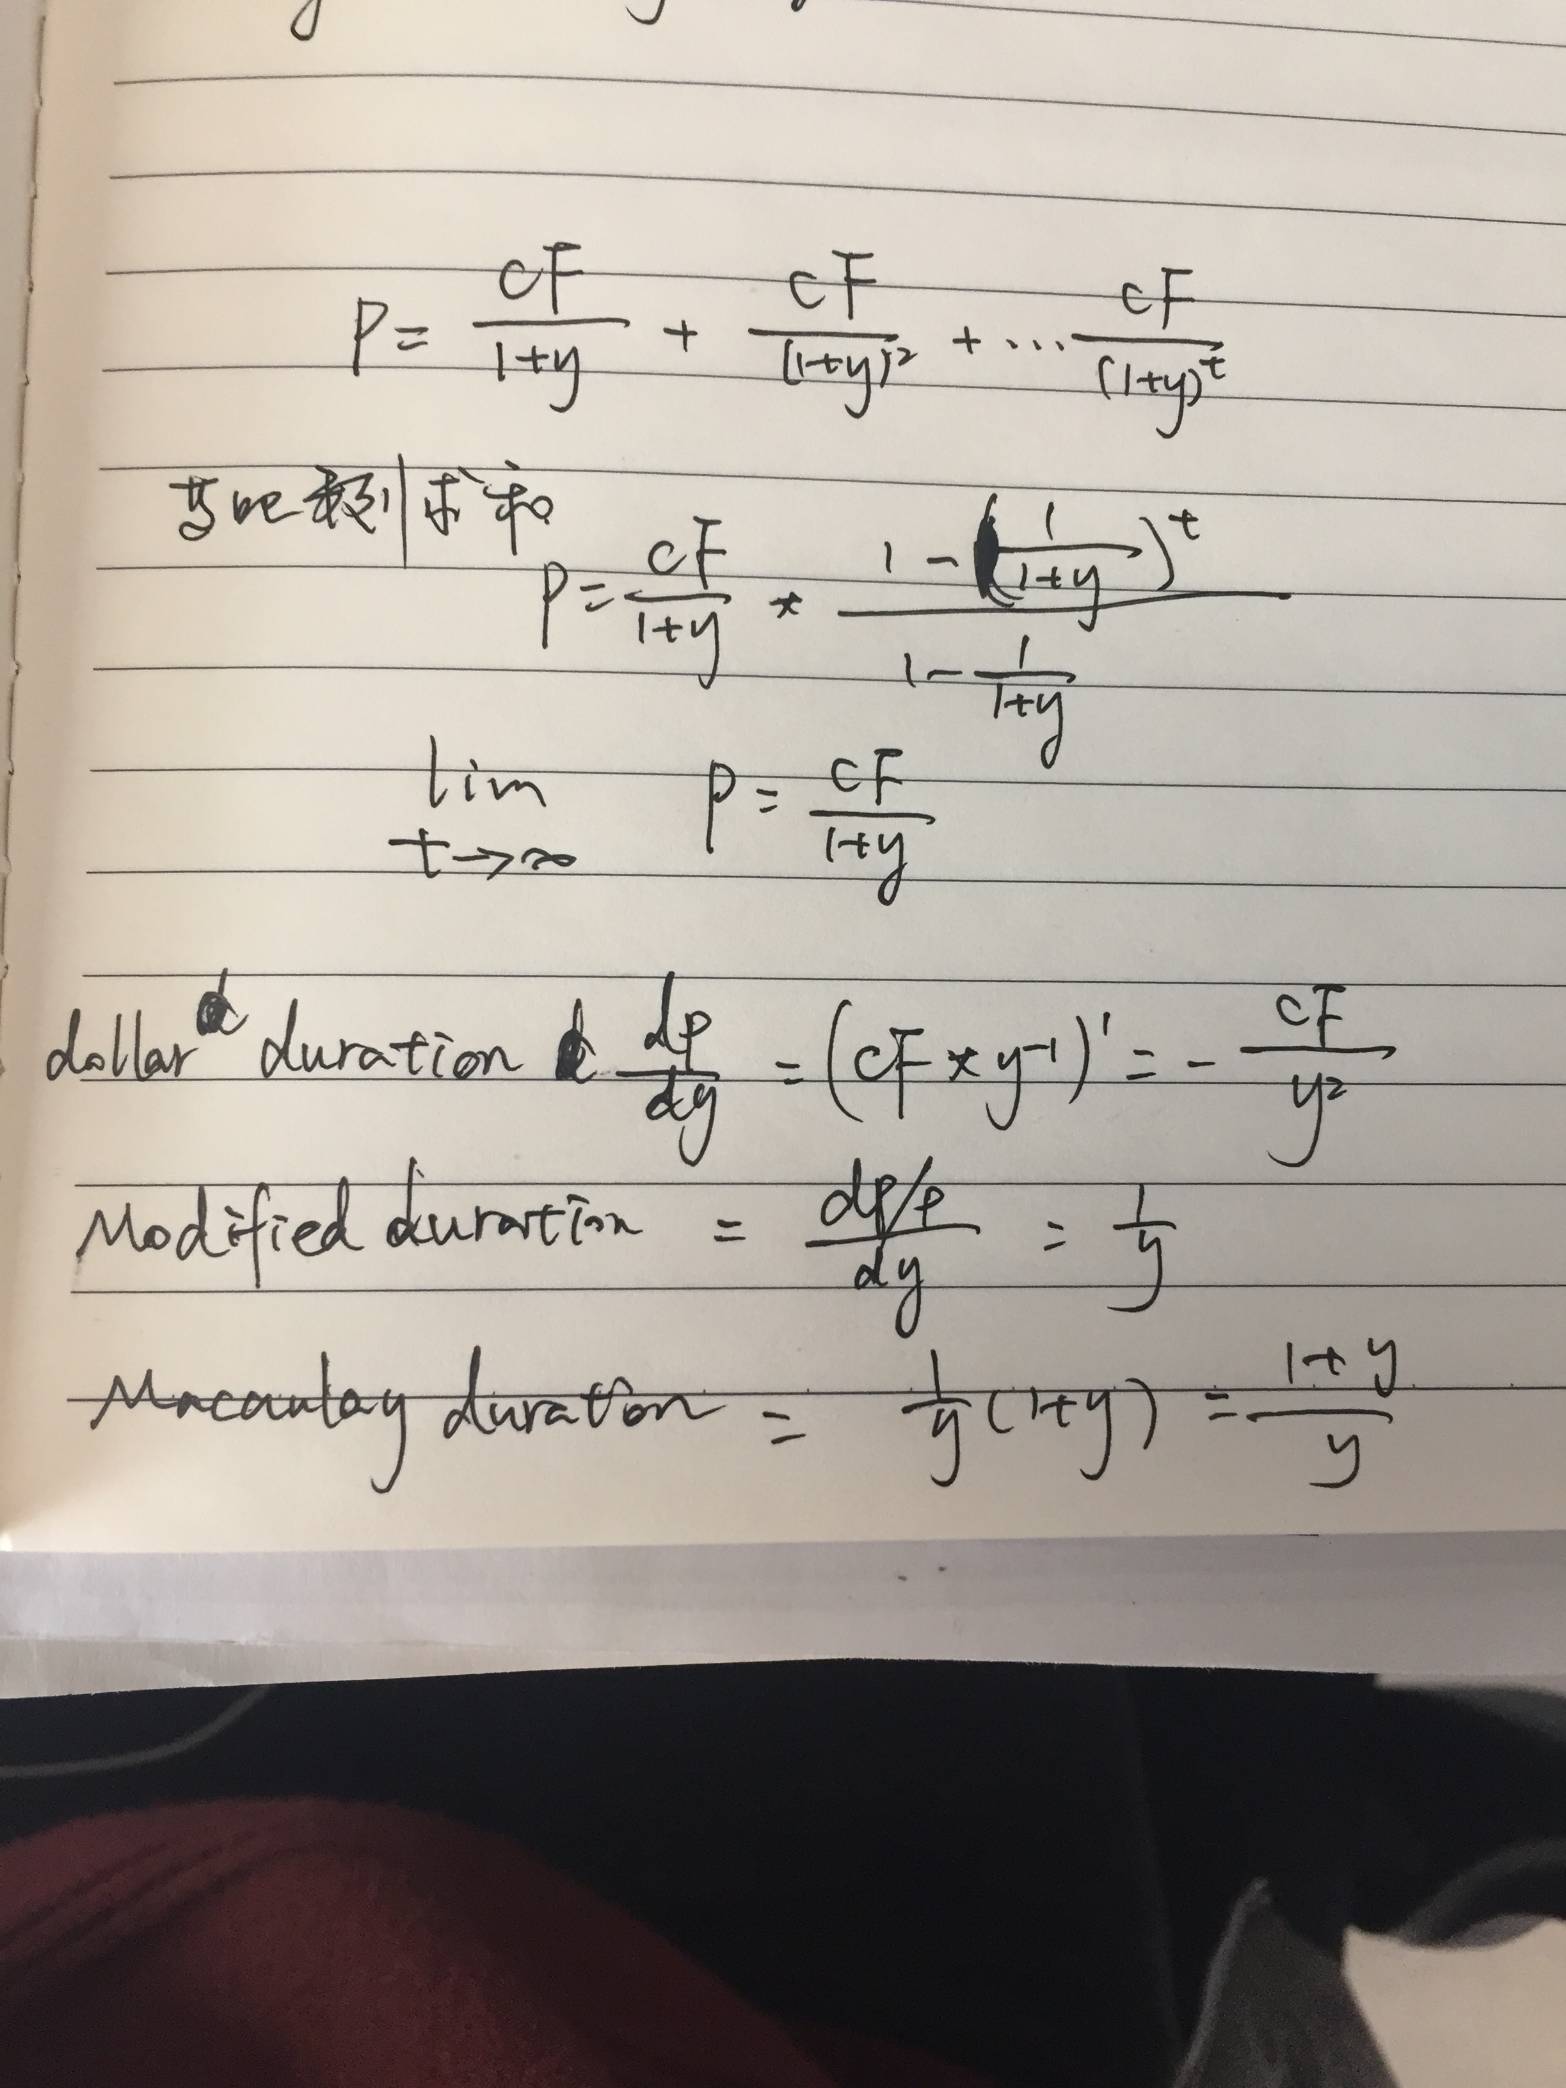 P = cF/(1+y) + cF/(1+y)² + ... cF/(1+y)^t
等比数列求和
P = cF/(1+y) * (1-(1/(1+y))^t)/(1-1/(1+y))
lim t→∞ P = cF/(1+y)
dollar duration dP/dy = (cF * y⁻¹)' = - cF/y²
Modified duration = (dP/P)/dy = 1/y
Macaulay duration = 1/y (1+y) = (1+y)/y